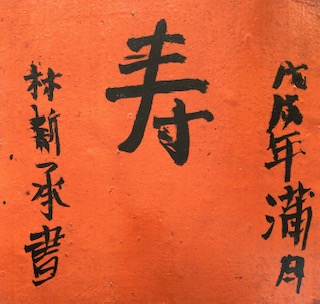 戊戌年蒲月
寿
林新承書